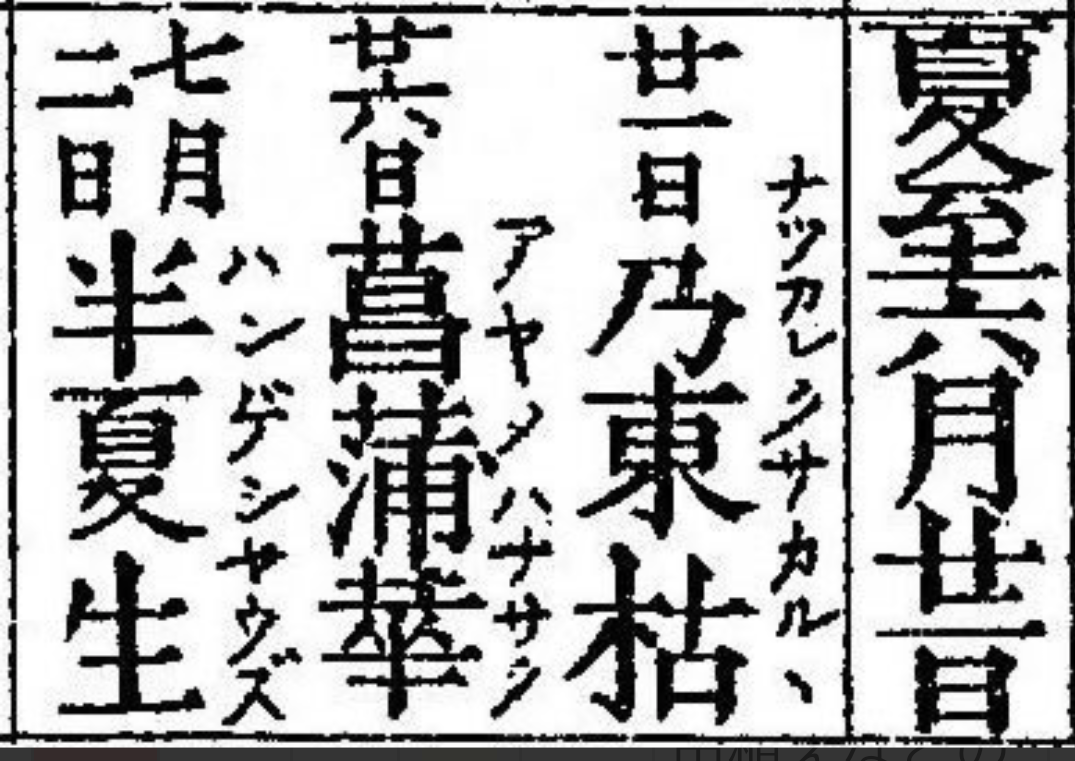 夏至六月廿一日
ナツカレクサカルヽ
廿一日乃東枯
アヤメハナサク
廿六日菖蒲華
ハンゲシヤウズ
七月二日半夏生